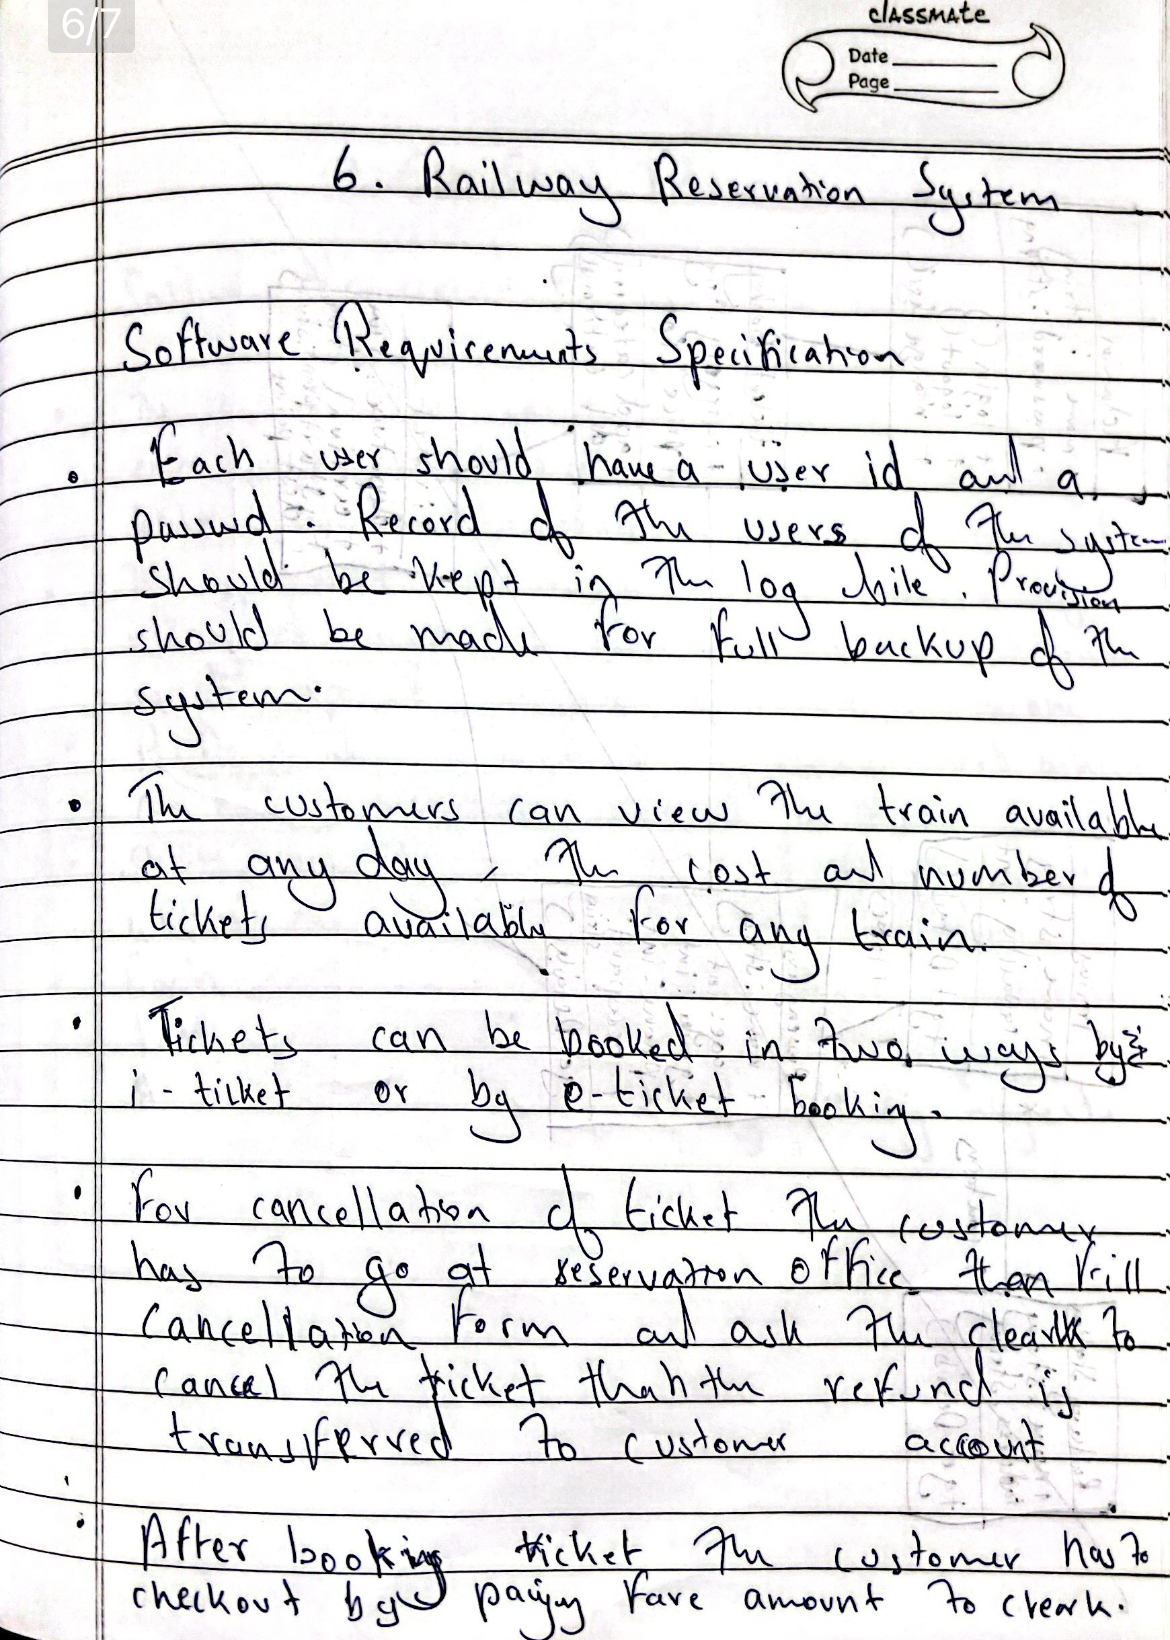 6/7
classmate
Date
Page
6. Railway Reservation System
Software Requirements Specification
• Each user should have a user id and a
password. Record of the users of the system
should be kept in the log file. Provision
should be made for full backup of the
system.
• The customers can view the train available
at any day, the cost and number of
tickets available for any train.
• Tickets can be booked in two ways by
i-ticket or by e-ticket booking.
• For cancellation of ticket the customer
has to go at reservation office then fill
cancellation form and ask the to
cancel the ticket than the refund is
transferred to customer account
• After booking ticket the customer has to
checkout by paying fare amount to clerk.